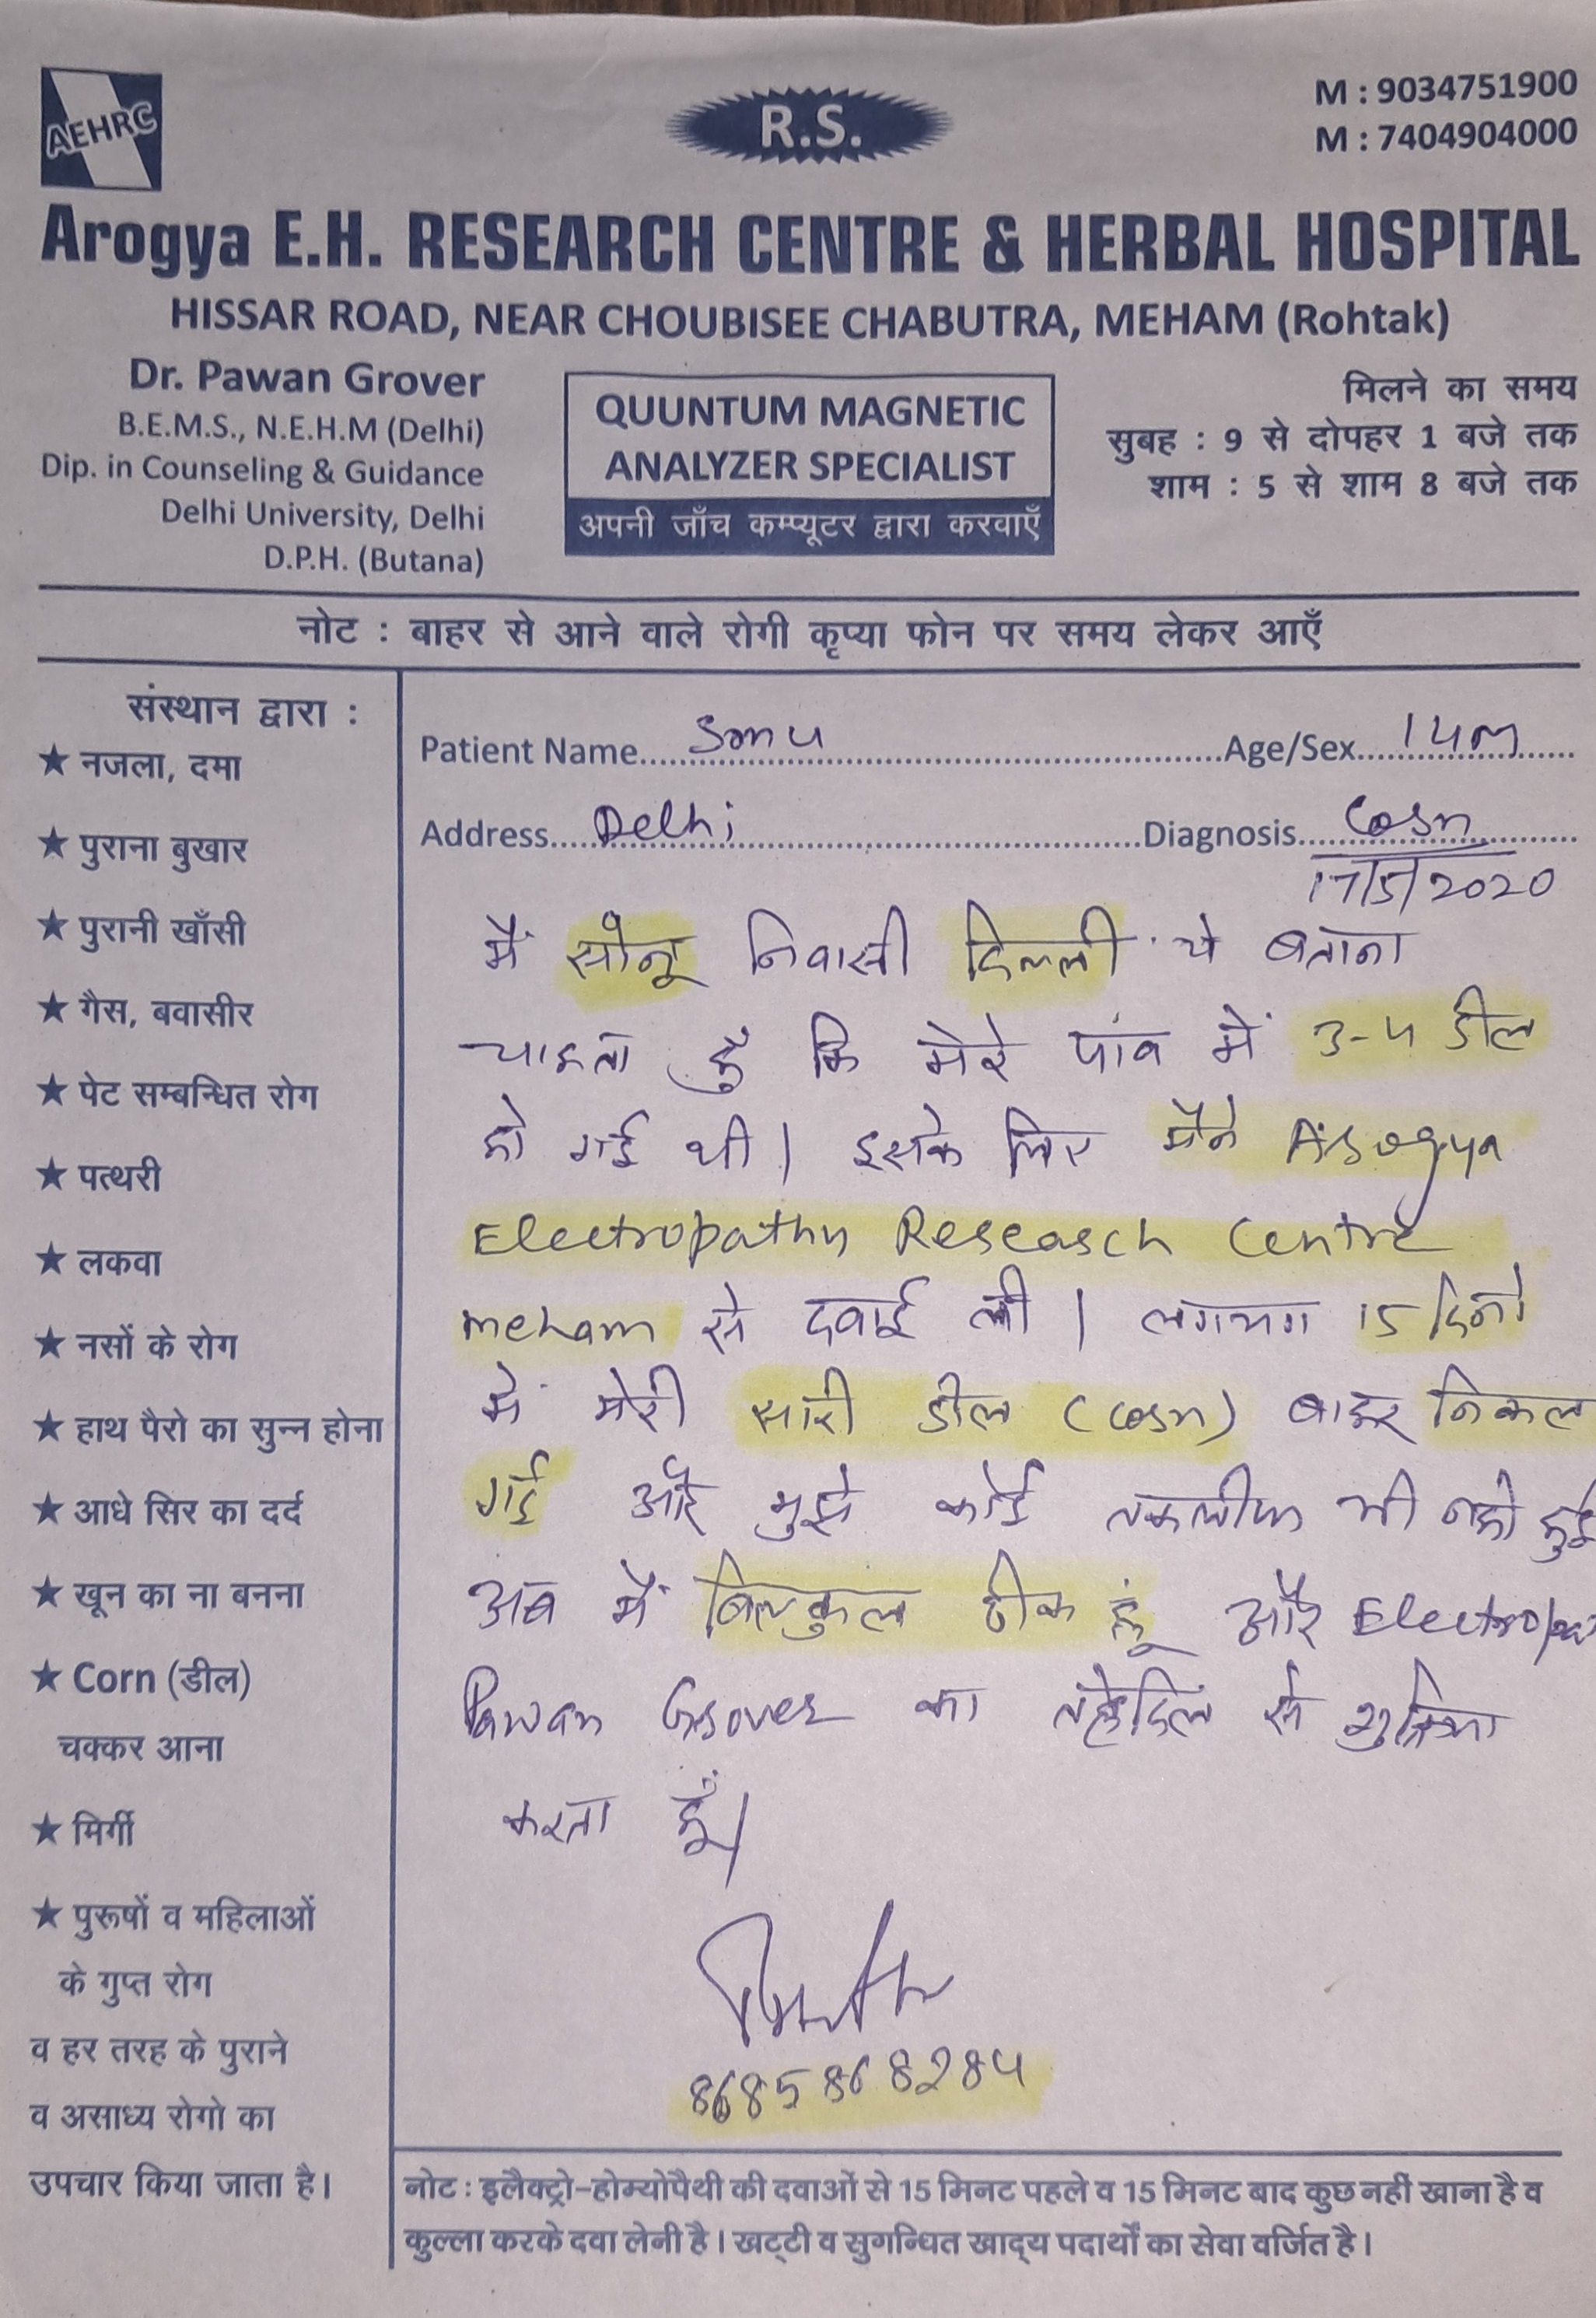 AEHRC
R.S.
M : 9034751900
M : 7404904000
Arogya E.H. RESEARCH CENTRE & HERBAL HOSPITAL
HISSAR ROAD, NEAR CHOUBISEE CHABUTRA, MEHAM (Rohtak)
Dr. Pawan Grover
B.E.M.S., N.E.H.M (Delhi)
Dip. in Counseling & Guidance
Delhi University, Delhi
D.P.H. (Butana)
QUUNTUM MAGNETIC
ANALYZER SPECIALIST
अपनी जाँच कम्प्यूटर द्वारा करवाएँ
मिलने का समय
सुबह : 9 से दोपहर 1 बजे तक
शाम : 5 से शाम 8 बजे तक
नोट : बाहर से आने वाले रोगी कृप्या फोन पर समय लेकर आएँ
संस्थान द्वारा :
★ नजला, दमा
★ पुराना बुखार
★ पुरानी खाँसी
★ गैस, बवासीर
★ पेट सम्बन्धित रोग
★ पत्थरी
★ लकवा
★ नसों के रोग
★ हाथ पैरो का सुन्न होना
★ आधे सिर का दर्द
★ खून का ना बनना
★ Corn (डील)
चक्कर आना
★ मिर्गी
★ पुरूषों व महिलाओं
के गुप्त रोग
व हर तरह के पुराने
व असाध्य रोगो का
उपचार किया जाता है।
Patient Name Sonu Age/Sex 14m
Address Delhi Diagnosis Corn
17/5/2020
मैं सोनू निवासी दिल्ली ये बताना
चाहता हूँ कि मेरे पांव में 3-4 डील
हो गई थी। इसके लिए मैने Arogya
Electropathy Research Centre
meham से दवाई ली। लगभग 15 दिनो
में मेरी सारी डील (corn) बाहर निकल
गई और मुझे कोई तकलीफ भी नही हुई
अब मैं बिल्कुल ठीक हूं और
Pawan Grover का तहेदिल से शुक्रिया
करता हूँ।
8685868284
नोट : इलैक्ट्रो-होम्योपैथी की दवाओं से 15 मिनट पहले व 15 मिनट बाद कुछ नहीं खाना है व
कुल्ला करके दवा लेनी है। खट्टी व सुगन्धित खाद्य पदार्थों का सेवा वर्जित है।